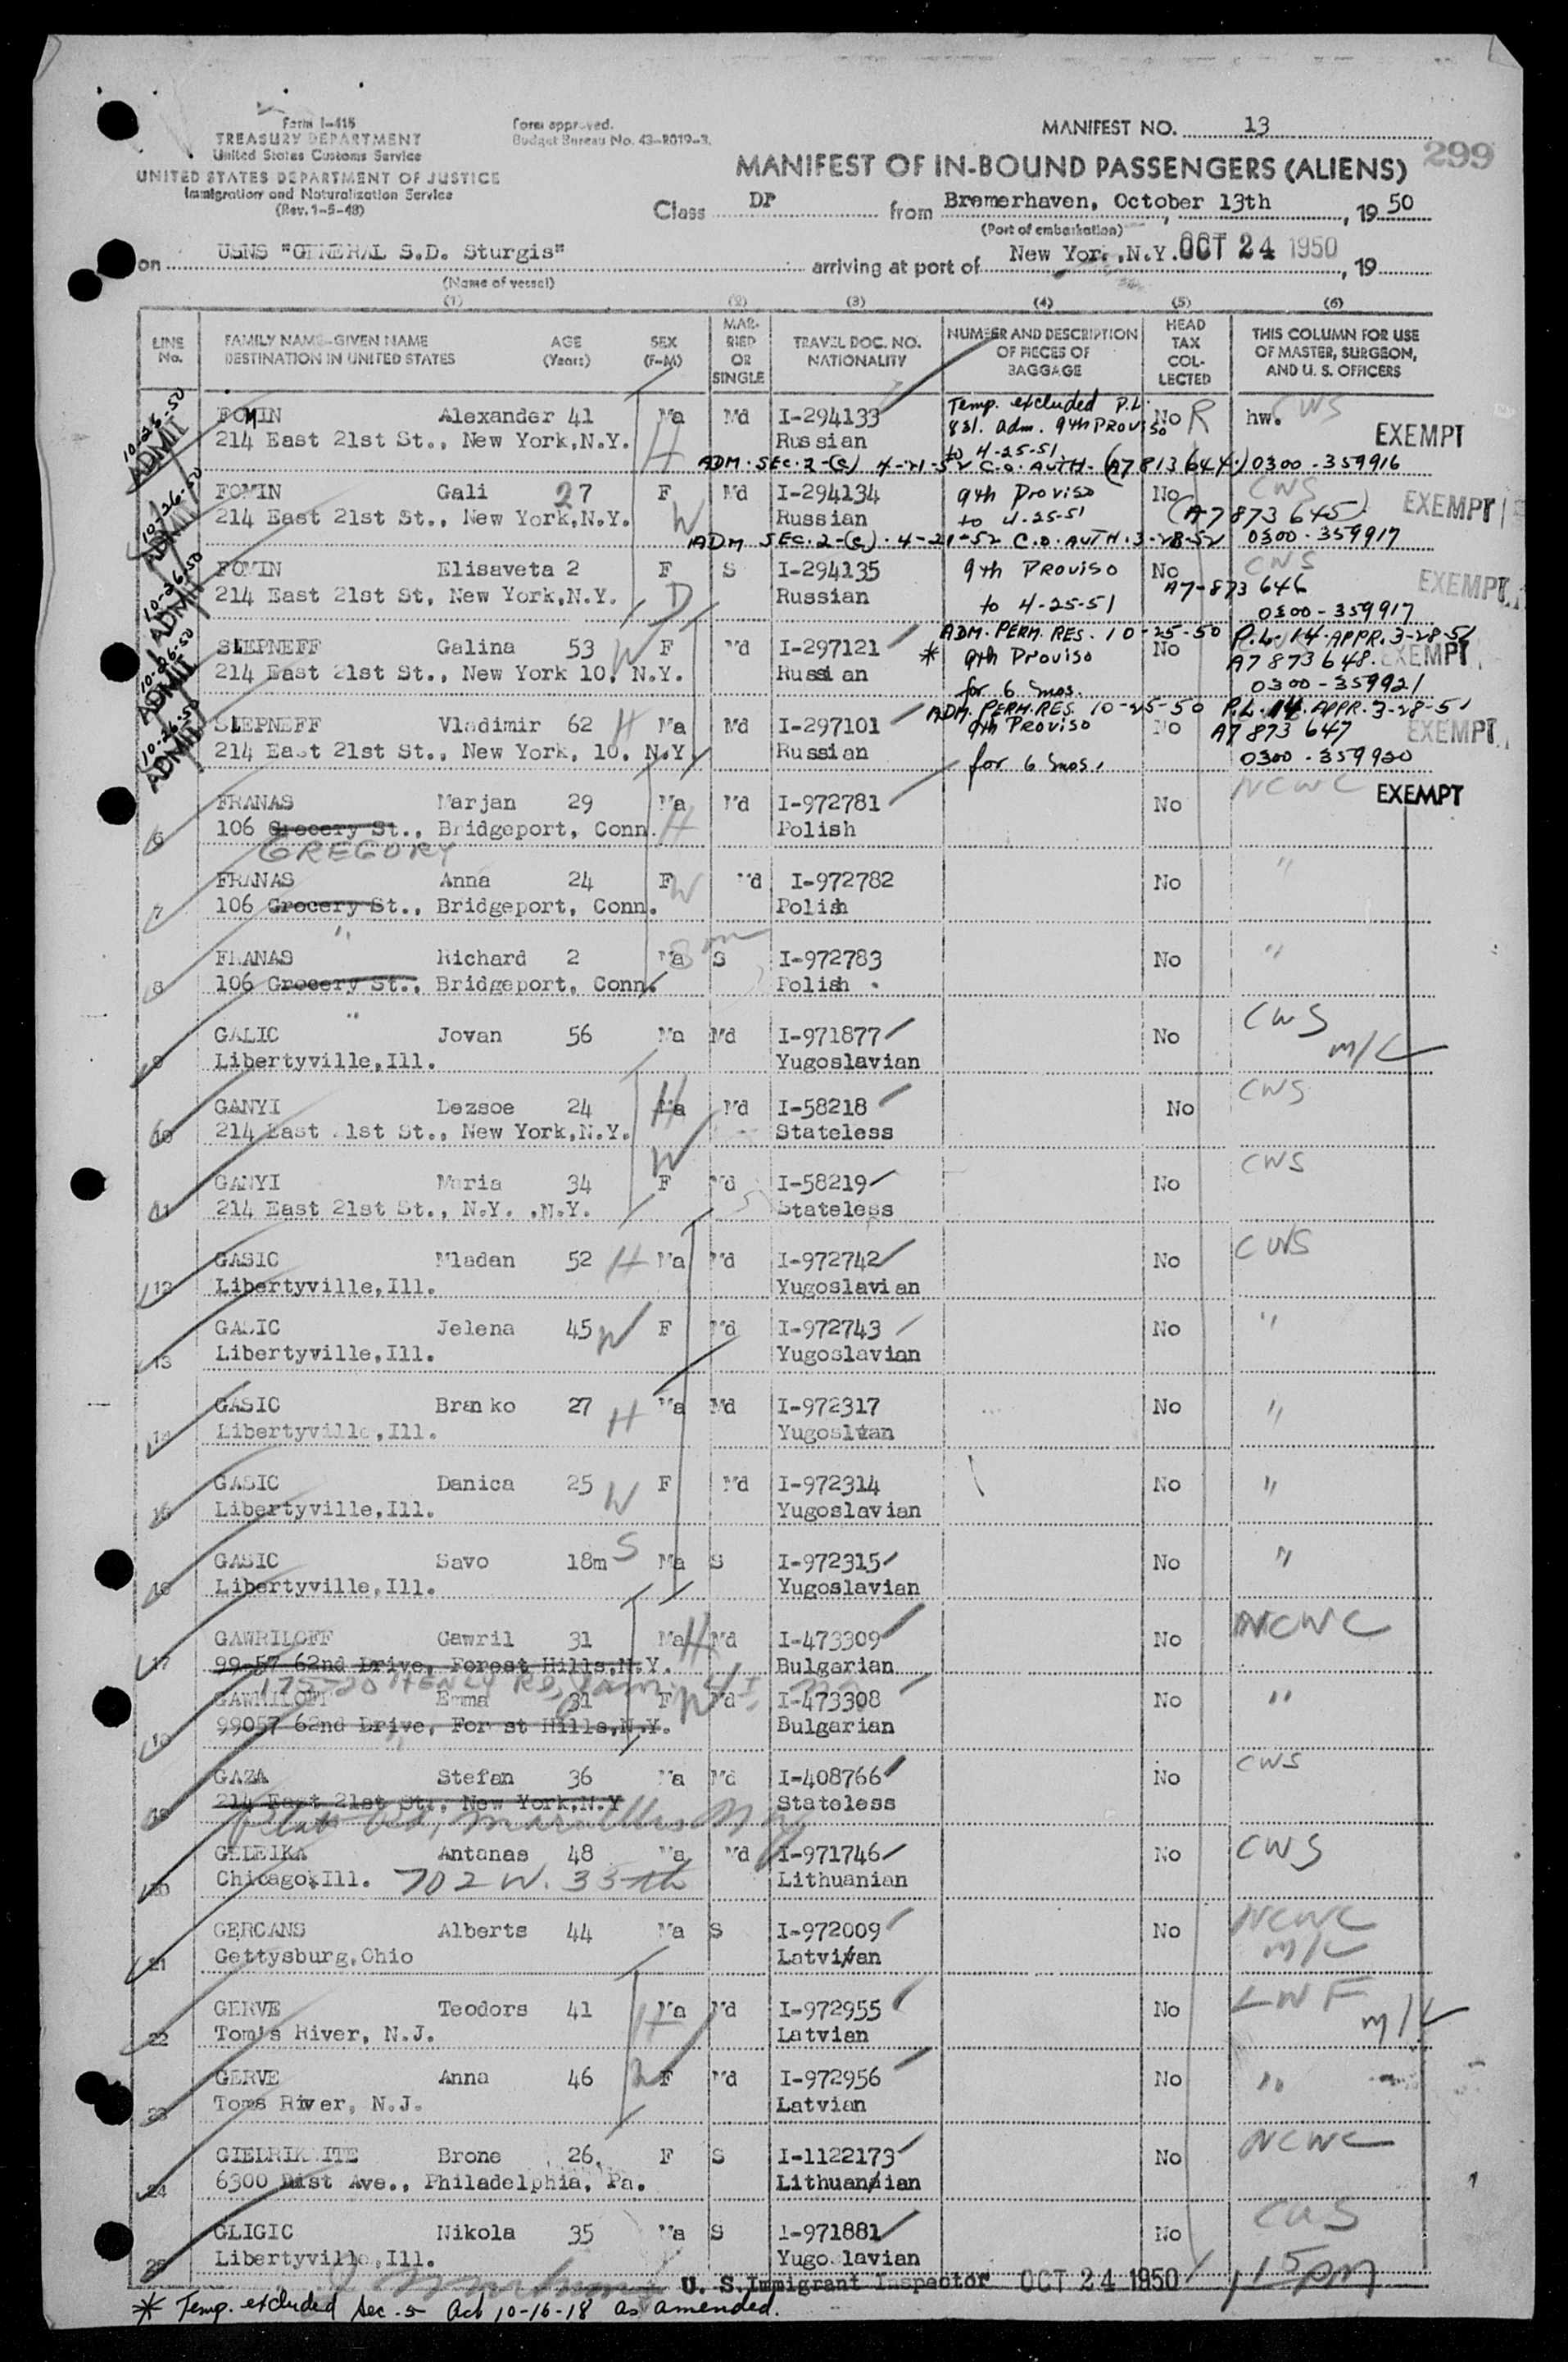 Form I-415
TREASURY DEPARTMENT
United States Customs Service
UNITED STATES DEPARTMENT OF JUSTICE
Immigration and Naturalization Service
(Rev. 1-5-48)
Form approved.
Budget Bureau No. 43-R019-3.
MANIFEST NO. 13
299
MANIFEST OF IN-BOUND PASSENGERS (ALIENS)
Class DP from Bremerhaven, October 13th, 19 50
(Port of embarkation)
on USNS "GENERAL S.D. Sturgis" arriving at port of New York, N.Y. OCT 24 1950, 19
(Name of vessel)
(1) (2) (3) (4) (5) (6)
LINE No.
FAMILY NAME-GIVEN NAME AGE SEX
DESTINATION IN UNITED STATES (Years) (F-M)
MARRIED OR SINGLE
TRAVEL DOC. NO. NATIONALITY
NUMBER AND DESCRIPTION OF PIECES OF BAGGAGE
HEAD TAX COLLECTED
THIS COLUMN FOR USE OF MASTER, SURGEON, AND U. S. OFFICERS
10-26-50 ADMIT FOMIN Alexander 41 Ma Md I-294133 Temp. excluded P.L. No R hw. CWS
214 East 21st St., New York,N.Y. H Russian 831. adm. 9th PROVISO to 4-25-51 EXEMPT
ADM. SEC. 2-(c) 4-21-52 C.O. AUTH. (A7813644) 0300-359916
10-26-50 ADMIT FOMIN Gali 27 F Md I-294134 9th Proviso No CWS EXEMPT
214 East 21st St., New York,N.Y. W Russian to 4-25-51 (A7 873 645)
ADM SEC. 2-(c). 4-21-52 C.O. AUTH. 3-28-52 0300-359917
10-26-50 ADMIT FOMIN Elisaveta 2 F S I-294135 9th PROVISO No CWS EXEMPT
214 East 21st St, New York,N.Y. D Russian to 4-25-51 A7-873 646
0300-359917
ADM. PERM. RES. 10-25-50 P.L. 14. APPR. 3-28-51
10-26-50 ADMIT SLEPNEFF Galina 53 W F Md I-297121 * 9th Proviso No A7 873648. EXEMPT
214 East 21st St., New York 10, N.Y. Russian for 6 mos. 0300-359921
ADM. PERM. RES. 10-25-50 P.L. 14. APPR. 3-28-51
10-26-50 ADMIT SLEPNEFF Vladimir 62 H Ma Md I-297101 9th PROVISO No A7 873 647 EXEMPT
214 East 21st St., New York, 10, N.Y. Russian for 6 mos. 0300-359920
6 FRANAS Marjan 29 Ma Md I-972781 No NCWC EXEMPT
106 Grocery St., Bridgeport, Conn. H Polish
GREGORY
7 FRANAS Anna 24 F W Md I-972782 No "
106 Grocery St., Bridgeport, Conn. Polish
"
8 FRANAS Richard 2 Ma S I-972783 No "
106 Grocery St., Bridgeport, Conn. Polish
"
9 GALIC Jovan 56 Ma Md I-971877 No CWS
Libertyville,Ill. Yugoslavian m/L
10 GANYI Dezsoe 24 H Ma Md I-58218 No CWS
214 East 21st St., New York,N.Y. Stateless
11 GANYI Maria 34 W F Md I-58219 No CWS
214 East 21st St., N.Y. ,N.Y. Stateless
12 GASIC Mladan 52 H Ma Md I-972742 No CWS
Libertyville,Ill. Yugoslavian
13 GASIC Jelena 45 W F Md I-972743 No "
Libertyville,Ill. Yugoslavian
14 GASIC Branko 27 H Ma Md I-972317 No "
Libertyville,Ill.
15 GASIC Danica 25 W F Md I-972314 No "
Libertyville,Ill. Yugoslavian
16 GASIC Savo 18m S Ma S I-972315 No "
Libertyville,Ill. Yugoslavian
17 GAWRILOFF Gawril 31 Ma H Md I-473309 No NCWC
99-57 62nd Drive, Forest Hills,N.Y. Bulgarian
18 GAWRILOFF Emma 31 F W Md I-473308 No "
99057 62nd Drive, Forest Hills,N.Y. Bulgarian
19 GAZA Stefan 36 Ma Md I-408766 No CWS
214 East 21st St., New York,N.Y Stateless
20 GELEIKA Antanas 48 Ma Md I-971746 No CWS
Chicago,Ill. 702 W. 35th Lithuanian
21 GERCANS Alberts 44 Ma S I-972009 No NCWC
Gettysburg,Ohio Latvian m/L
22 GERVE Teodors 41 H Ma Md I-972955 No LWF
Tom's River, N.J. Latvian m/L
23 GERVE Anna 46 W F Md I-972956 No "
Toms River, N.J. Latvian
24 Brone 26 F S I-1122173 No NCWC
6300 Ave., Philadelphia, Pa. Lithuanian
25 GLIGIC Nikola 35 Ma S I-971881 No CWS
Libertyville,Ill. Yugoslavian
U. S. Immigrant Inspector OCT 24 1950 15 PM
* Temp. excluded Sec. 5 Act 10-16-18 as amended.